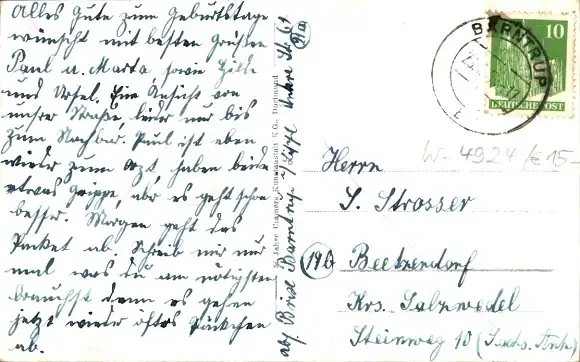 Alles Gute zum Geburtstage
wünscht mit besten Grüßen
Paul u. Marta, sowie Hilde
und Ursel. Eine Ansicht von
unsrer Straße, leider nur bis
zum Nachbar. Paul ist eben
wieder zum Arzt, haben beide
etwas Grippe, aber es geht schon
besser. Morgen geht das
Packet ab. Schreib mir nur
mal was du am nötigsten
brauchst denn es gehen
jetzt wieder öfters Päckchen
ab.
abs. Böse Barntrup i/Lippe Untere Str. 61
21a
Jahre Cramers Kunstanstalt K.G., Dortmund
BARNTRUP
10
DEUTSCHE POST
W- 4924 / € 15-
Herrn
S. Strosser
19b Beetzendorf
Krs. Salzwedel
Steinweg 10 (Sachs. Anh)